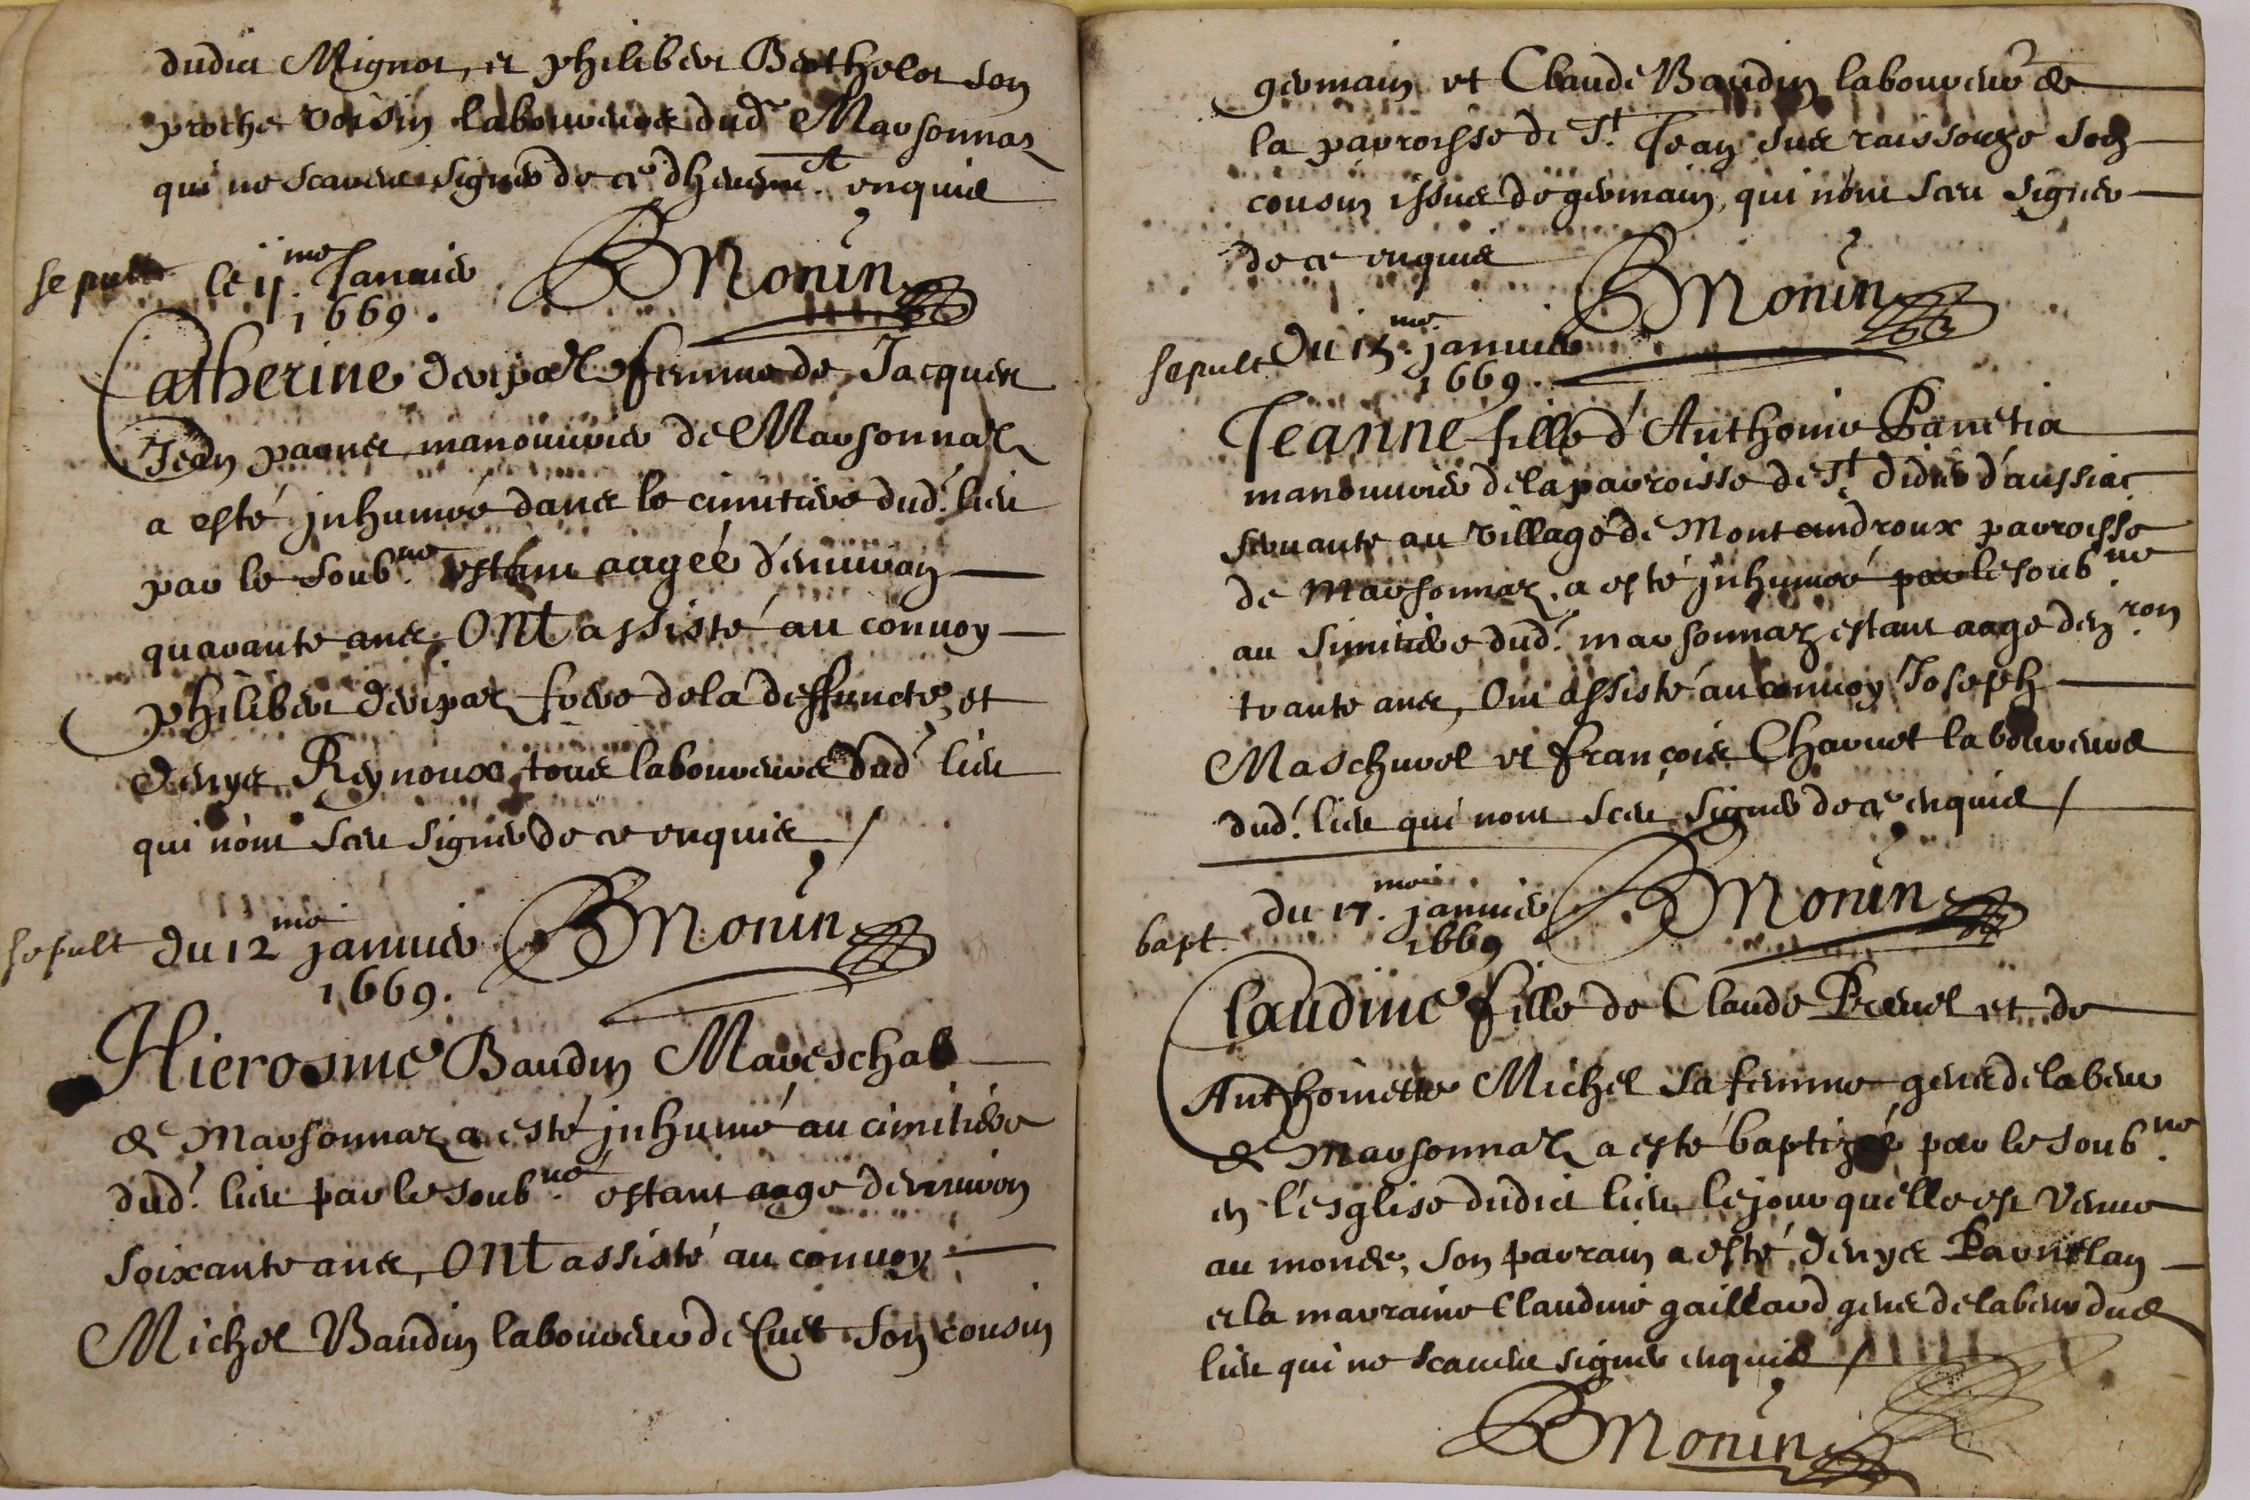 dudict Mignot, et philibert Berthelot son
proche voisin laboureurs dud. Marsonnaz
qui ne scavent signer de ce dheuem.t enquis
sepult. le 11.me Januier
1669.
BMonin
Catherine Deripaz femme de Jacques
Jean pagnet manouurier de Marsonnaz
a esté jnhumée dans le cimitiere dud. lieu
par le soub.né estant aagée d'enuiron
quarante ans, ONt assisté au conuoy
philibert Deripaz frere de la deffuncte, et
denys Reynoux tous laboureurs dud lieu
qui n'ont sceu signer de ce enquis /
sepult du 12 me januier
1669.
BMonin
Hierosme Baudin Mareschal
de Marsonnaz a esté jnhumé au cimitiére
dud. lieu par le soub.né estant aage denuiron
soixante ans, ONt assisté au conuoy
Michel Baudin laboureur de Cuet son cousin
germain et Claude Baudin laboureur de
la parroisse de St. Jean sur raissouze son
cousin issus de germain, qui n'ont sceu signer
de ce enquis
BMonin
sepult du 15.me januier
1669.
Jeanne fille d'Anthoine Panetia
manouurier de la parroisse de St didier d'aussiac
seruante au village de Montandroux parroisse
de Marsonnaz, a esté jnhumée par le soub.né
au simitiere dud. marsonnaz estant aage den.ron
trante ans, Ont assisté au conuoy Joseph
Maschurel et françois Charuet laboureurs
dud. lieu qui nont sceu signer de ce enquis /
BMonin
bapt. du 17.me januier
1669
Claudine fille de Claude Preuel et de
Anthoinette Michel sa femme gens de labeur
de Marsonnaz a esté baptizée par le soub.né
en l'esglise dudict lieu le jour qu'elle est venue
au monde, son parrain a esté denys Pauuelan
et la marraine Claudine gaillard gens de labeur dud
lieu qui ne scauent signer enquis /
BMonin